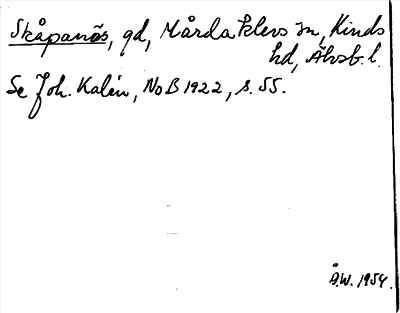 Skåpanäs, gd, Mårdaklevs sn, Kinds
hd, Älvsb. l.
Se Joh. Kalén, NoB 1922, s. 55.
Å.W. 1954.